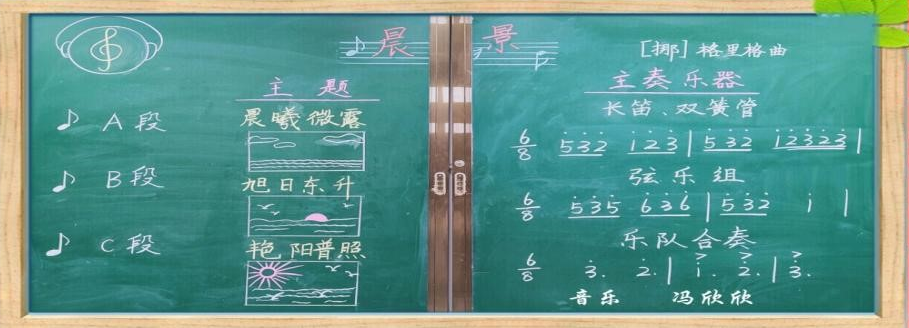 晨景
[挪]格里格曲
主题
A段
晨曦微露
B段
旭日东升
C段
艳阳普照
主奏乐器
长笛、双簧管
6/8 532 123 | 532 12323 |
弦乐组
6/8 535 636 | 532 i |
乐队合奏
6/8 3. 2. | i. 2. | 3.
音乐 冯欣欣